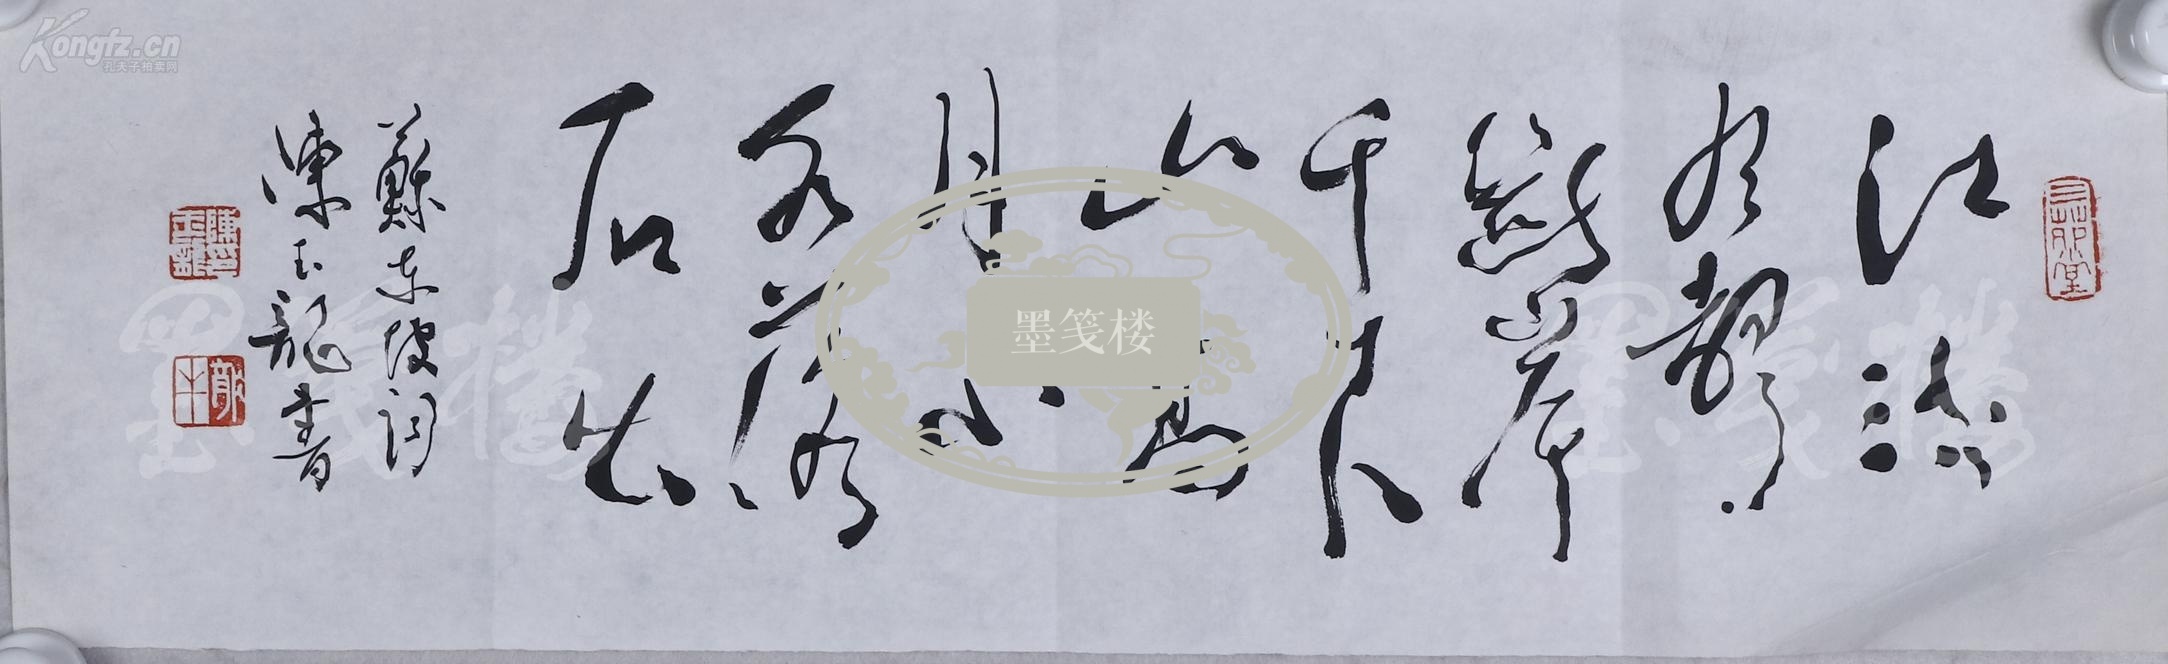 江流
有聲
斷岸
千尺
山高
月小
水落
石出
蘇東坡詞
陳玉龍書
陳玉龍
墨笺楼
墨笺楼
墨笺楼
Kongfz.cn
孔夫子拍卖网